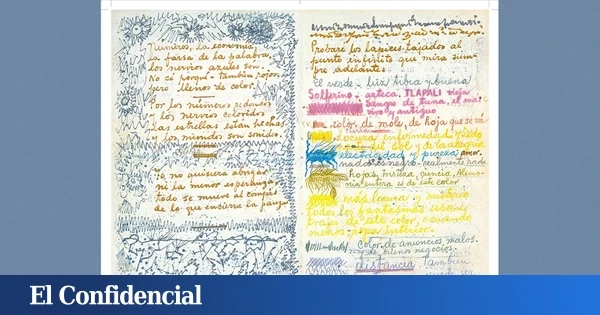 Números, la economía
la farsa de la palabra,
los nervios azules son.
No sé porqué - también rojos,
pero llenos de color.
Por los números redondos
y los nervios coloridos
las estrellas están hechas
y los mundos son sonidos.
Yo no quisiera abrigar
ni la menor esperanza,
todo se mueve al compás
de lo que encierra la panza
Probaré los lápices tajados al
punto infinito que mira siem-
pre adelante:
El verde - luz tibia y buena
Solferino - azteca. TLAPALI vieja
Sangre de tuna, el más
vivo y antiguo
color de mole, de hoja que se va
tierra
locura enfermedad miedo
parte del sol y de la alegría
electricidad y pureza amor.
nada es negro - realmente nada
hojas, tristeza, ciencia, Alema-
nia entera es de este color
más locura y misterio
todos los fantasmas usan
trajes de este color, o cuando
menos ropa interior.
color de anuncios malos
y de buenos negocios.
distancia. También
El Confidencial